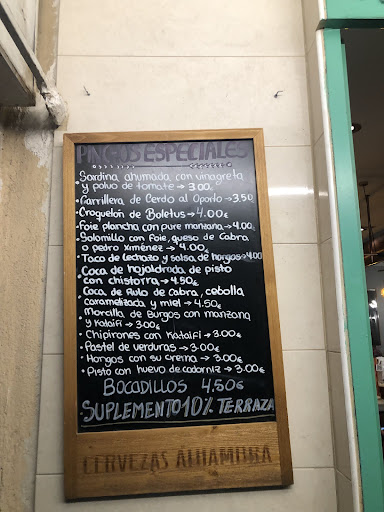 PINCHOS ESPECIALES
• Sardina ahumada con vinagreta
y polvo de tomate → 3.00€
• Carrillera de Cerdo al Oporto → 3.50
• Croquelón de Boletus → 4.00€
• Foie plancha con pure manzana → 4.00€
• Solomillo con foie, queso de Cabra
o pedro ximénez → 4.00€
• Taco de Lechazo y salsa de hongos → 4.00
• Coca de hojaldrada de pisto
con chistorra → 4.50€
• Coca de Rulo de cabra, cebolla
caramelizada y miel → 4.50€
• Morcilla de Burgos con manzana
y Kataifi → 3.00€
• Chipirones con Kataifi → 3.00€
• Pastel de verduras → 3.00€
• Hongos con su crema → 3.00€
• Pisto con huevo de codorniz → 3.00€
BOCADILLOS 4.50€
SUPLEMENTO 10% TERRAZA
CERVEZAS ALHAMBRA